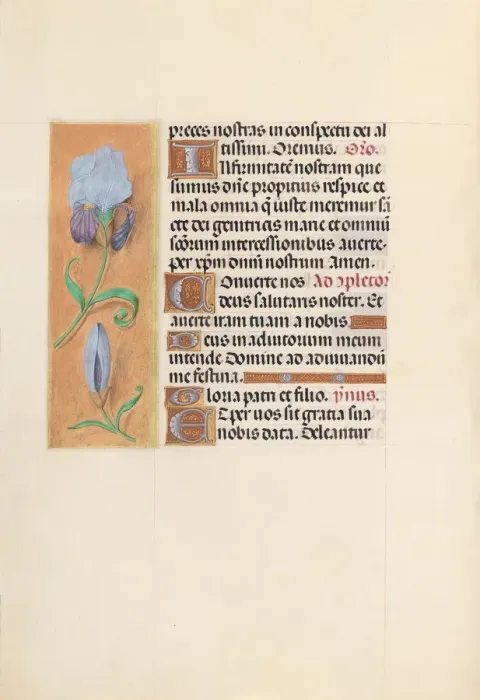 preces nostras in conspectu dei al
tissimi. Oremus. Oro.
Infirmitatē nostram que
sumus dn̄e propitius respice et
mala omnia q̄ iuste meremur sā
cte dei genitricis marie et omniū
sc̄orum intercessionibus auerte.
per xp̄m dnm̄ nostrum Amen.
Conuerte nos Ad cōpletor
deus salutaris noster. Et
auerte iram tuam a nobis.
Deus in adiutorium meum
intende Domine ad adiuuandū
me festina.
Gloria patri et filio. ymnus.
Et per uos sit gratia sua
nobis data. Deleantur